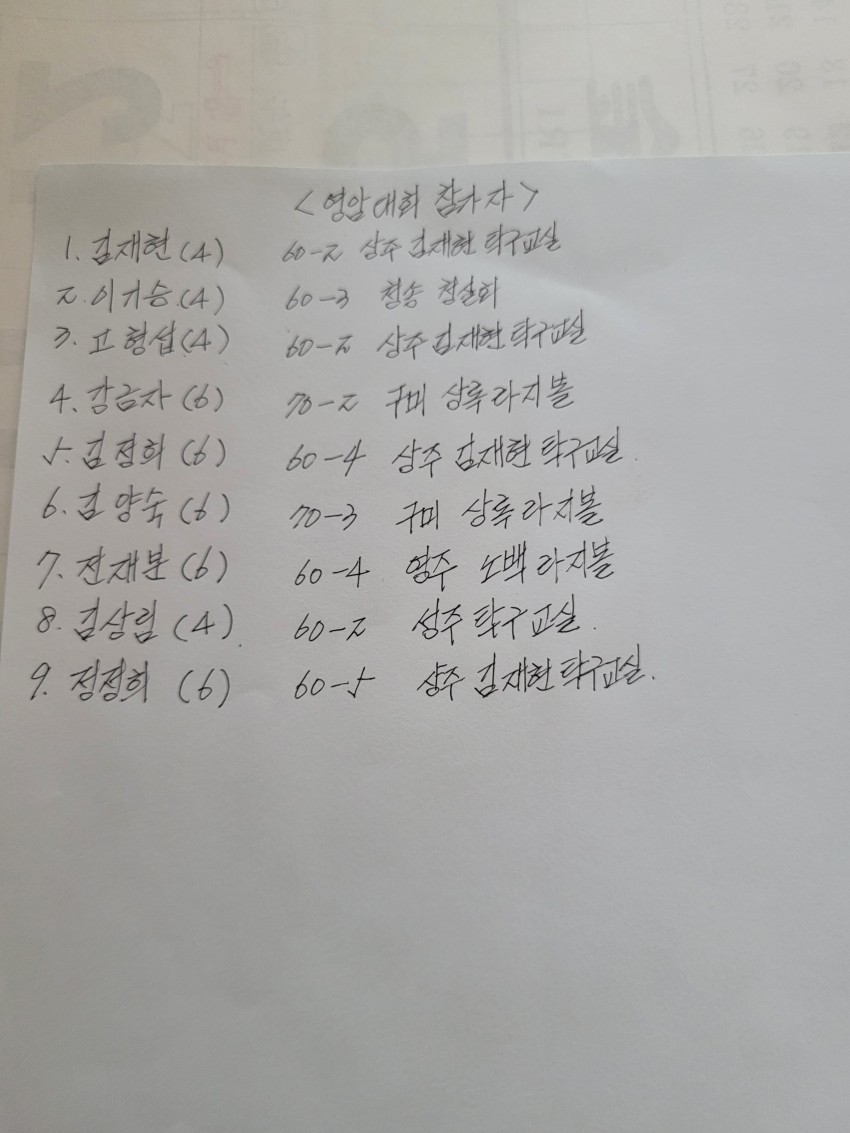 <영암대회 참가자>
1. 김재현(4) 60-2 상주 김재현 탁구교실
2. 이거승(4) 60-3 청송 청실회
3. 고형섭(4) 60-2 상주 김재현 탁구교실
4. 강금자(6) 70-2 구미 상록라지볼
5. 김정희(6) 60-4 상주 김재현 탁구교실.
6. 김양숙(6) 70-3 구미 상록라지볼
7. 전재분(6) 60-4 영주 노백라지볼
8. 김상림(4). 60-2 성주 탁구교실.
9. 정정희(6) 60-5 상주 김재현 탁구교실.